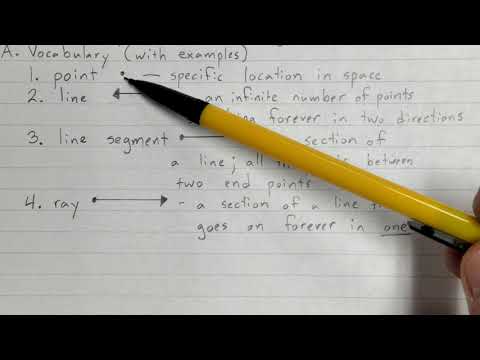 A. Vocabulary (with examples)
1. point — specific location in space
2. line an infinite number of points
forever in two directions
3. line segment section of
a line; all between
two end points
4. ray - a section of a line
goes on forever in one